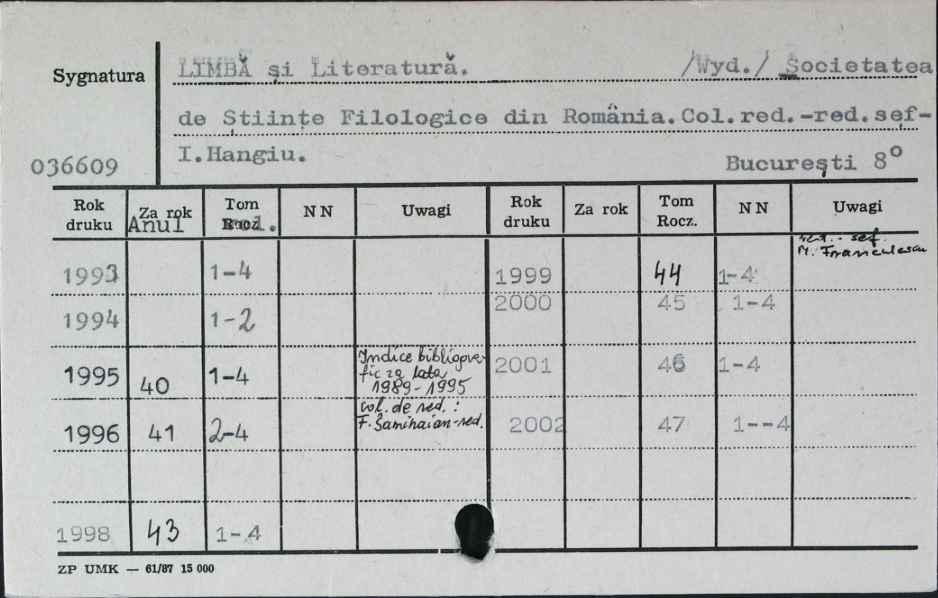 Sygnatura
LIMBĂ şi Literatură. /Wyd./ Societatea
de Ştiinţe Filologice din România. Col.red.-red.sef-
I.Hangiu. Bucureşti 8°
036609
Rok druku Za rok Tom Rocz. NN Uwagi Rok druku Za rok Tom Rocz. NN Uwagi
Anul
red. - sef.
M. Franculescu
1993 1-4 1999 44 1-4
1994 1-2 2000 45 1-4
1995 40 1-4 Indice bibliogra- 2001 46 1-4
fic za lata
1989-1995
1996 41 2-4 col. de red.: 2002 47 1--4
F. Şamihaian-red.
1998 43 1-4
ZP UMK — 61/87 15 000